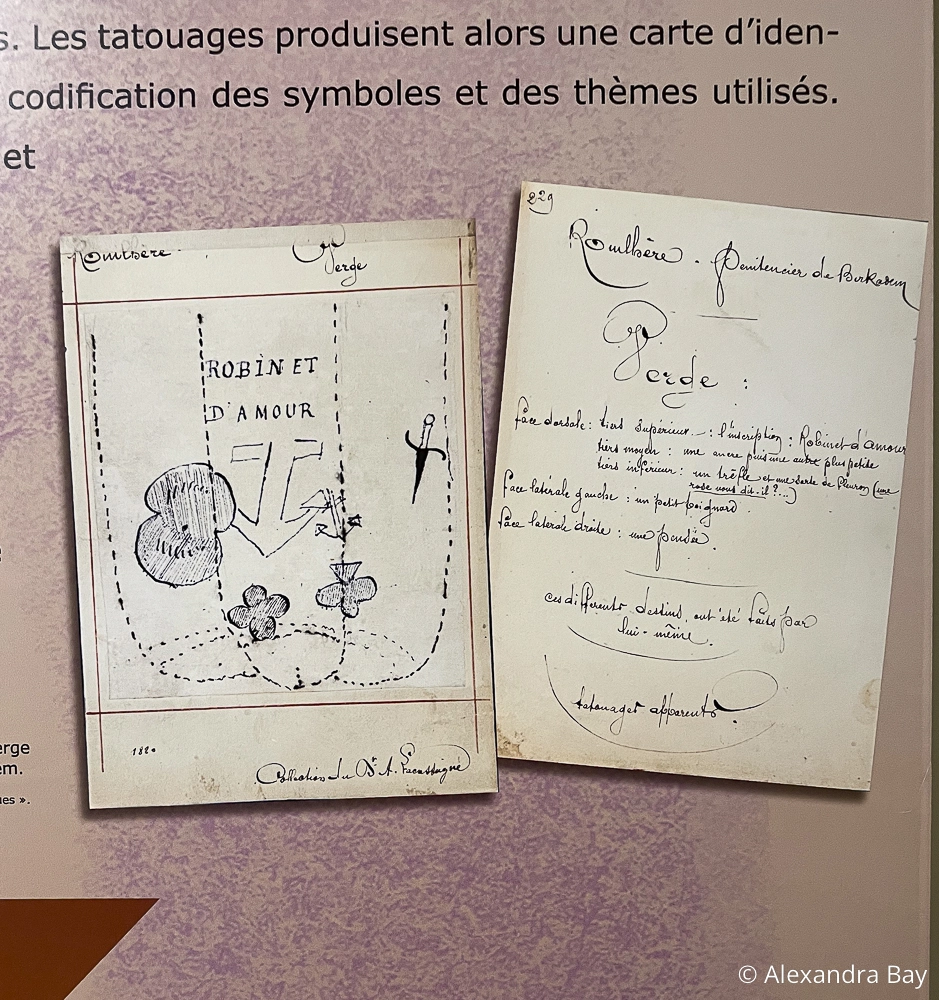 s. Les tatouages produisent alors une carte d’iden-
codification des symboles et des thèmes utilisés.
et
Roulhère
Verge
ROBÌNET
D'AMOUR
1880
Collection du Dr A. Lacassagne
erge
em.
ues ».
229
Roulhère - Pénitencier de Birkadem
Verge :
face dorsale : tiers supérieur : l'inscription : Robinet d'amour
tiers moyen : une ancre puis une autre plus petite
tiers inférieur : un trèfle et une sorte de fleuron (une
rose nous dit-il ?...)
face latérale gauche : un petit poignard.
face latérale droite : une pensée.
ces différents dessins ont été faits par
lui-même.
tatouages apparents.
© Alexandra Bay